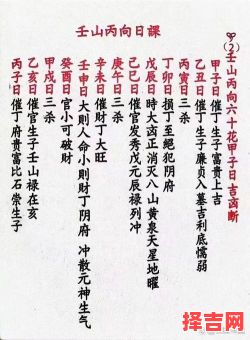 壬山丙向日課
(2)壬山丙向六十花甲子日吉凶斷
甲子日催丁生子富貴上吉
乙丑日催丁生子廉貞入墓吉利底懦弱
丙寅日三杀
丁卯日损丁至绝犯阴府
戊辰日時大凶正消灭八山黄泉天星地曜
己巳日催官发秀戊元辰禄列冲
庚午日三杀
辛未日催财丁大旺
壬申日大則人命小則财丁阴府 冲散元神生气
癸酉日官小可破财
甲戌日三杀
乙亥日催官生子壬山禄在亥
丙子日催丁府贵富比石崇生子
择吉网